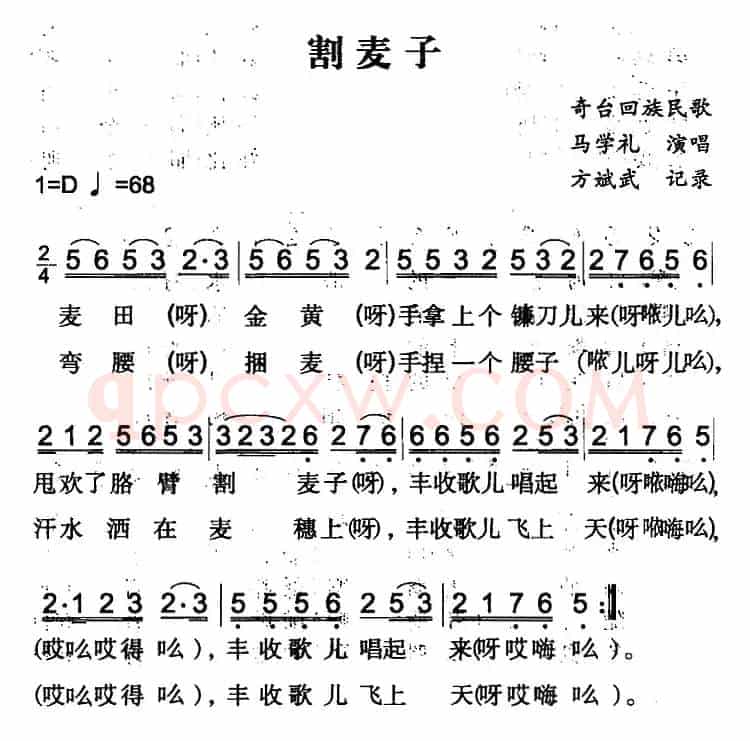 割麦子
奇台回族民歌
马学礼 演唱
1=D ♩=68 方斌武 记录
2/4 5 6 5 3 2·3 | 5 6 5 3 2 | 5 5 3 2 2 5 3 | 2 7 6 5 6 |
麦田(呀)金黄(呀)手拿上个镰刀儿来(呀哝儿么),
弯腰(呀)捆麦(呀)手捏一个腰子(哝儿呀儿么),
2 1 2 5 6 5 3 | 3 2 3 2 6 2 7 6 | 6 6 5 6 2 5 3 | 2 1 7 6 5 |
甩欢了胳臂割麦子(呀),丰收歌儿唱起来(呀哝嗨么),
汗水洒在麦穗上(呀),丰收歌儿飞上天(呀哝嗨么),
2·1 2 3 2·3 | 5 5 5 6 2 5 3 | 2 1 7 6 5 :‖
(哎么哎得么),丰收歌儿唱起来(呀哎嗨么)。
(哎么哎得么),丰收歌儿飞上天(呀哎嗨么)。
qpcxw.COM